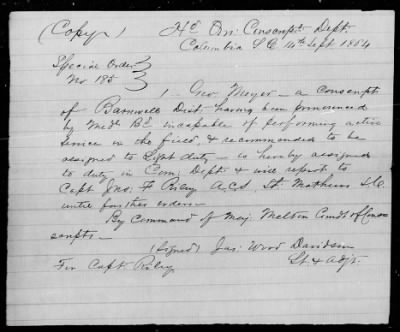 (Copy)
Hd Qrs Conscript Dept.
Columbia S.C. 14th Sept. 1864
Special Order
No 185
1 - Geo. Meyer - a conscript
of Barnwell Dist. having been pronounced
by Med. Bd. incapable of performing active
service in the field, & recommended to be
assigned to light duty - is hereby assigned
to duty in Com. Dept. & will report to
Capt. Jno. F. Riley A.C.S. St. Mathews S.C.
until further orders -
By Command of Maj. Melton Comdt of Con
scripts -
(Signed) Jas. Wood Davidson
Lt. & Adjt.
For Capt. Riley